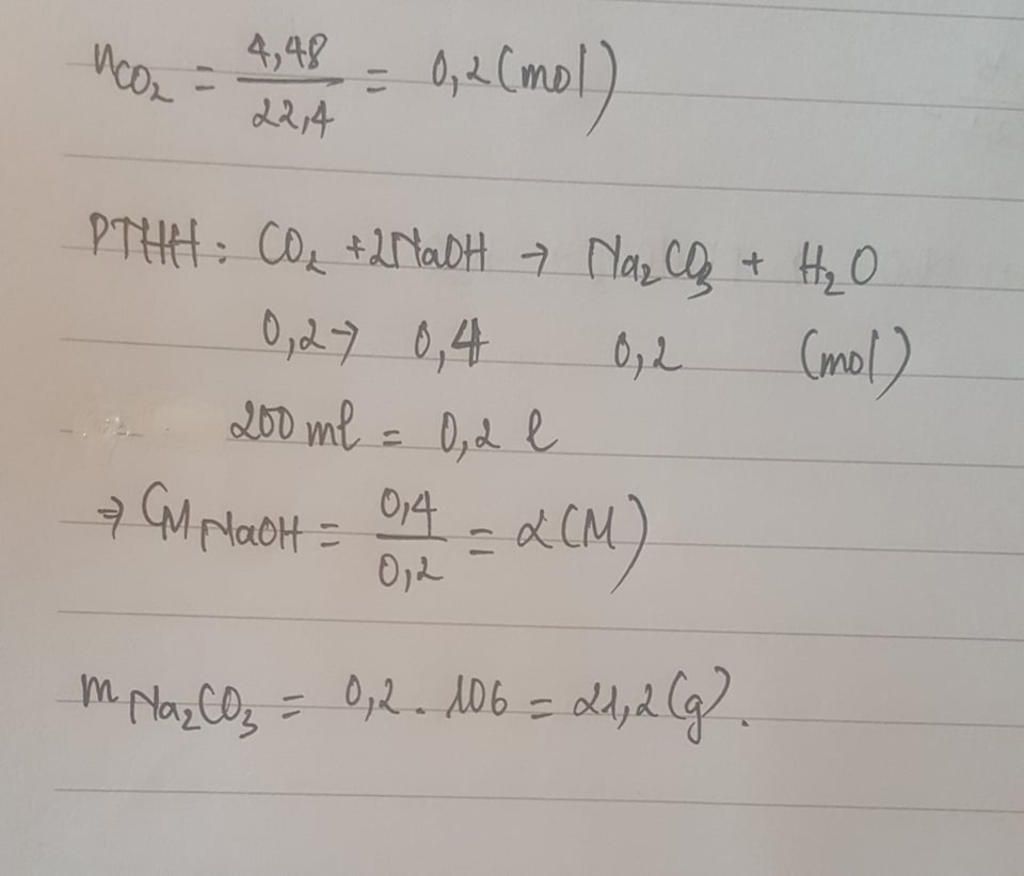 nCO₂ = 4,48/22,4 = 0,2 (mol)
PTHH: CO₂ + 2NaOH → Na₂CO₃ + H₂O
0,2 → 0,4 0,2 (mol)
200 ml = 0,2 l
⇒ CM NaOH = 0,4/0,2 = 2 (M)
m Na₂CO₃ = 0,2 . 106 = 21,2 (g).